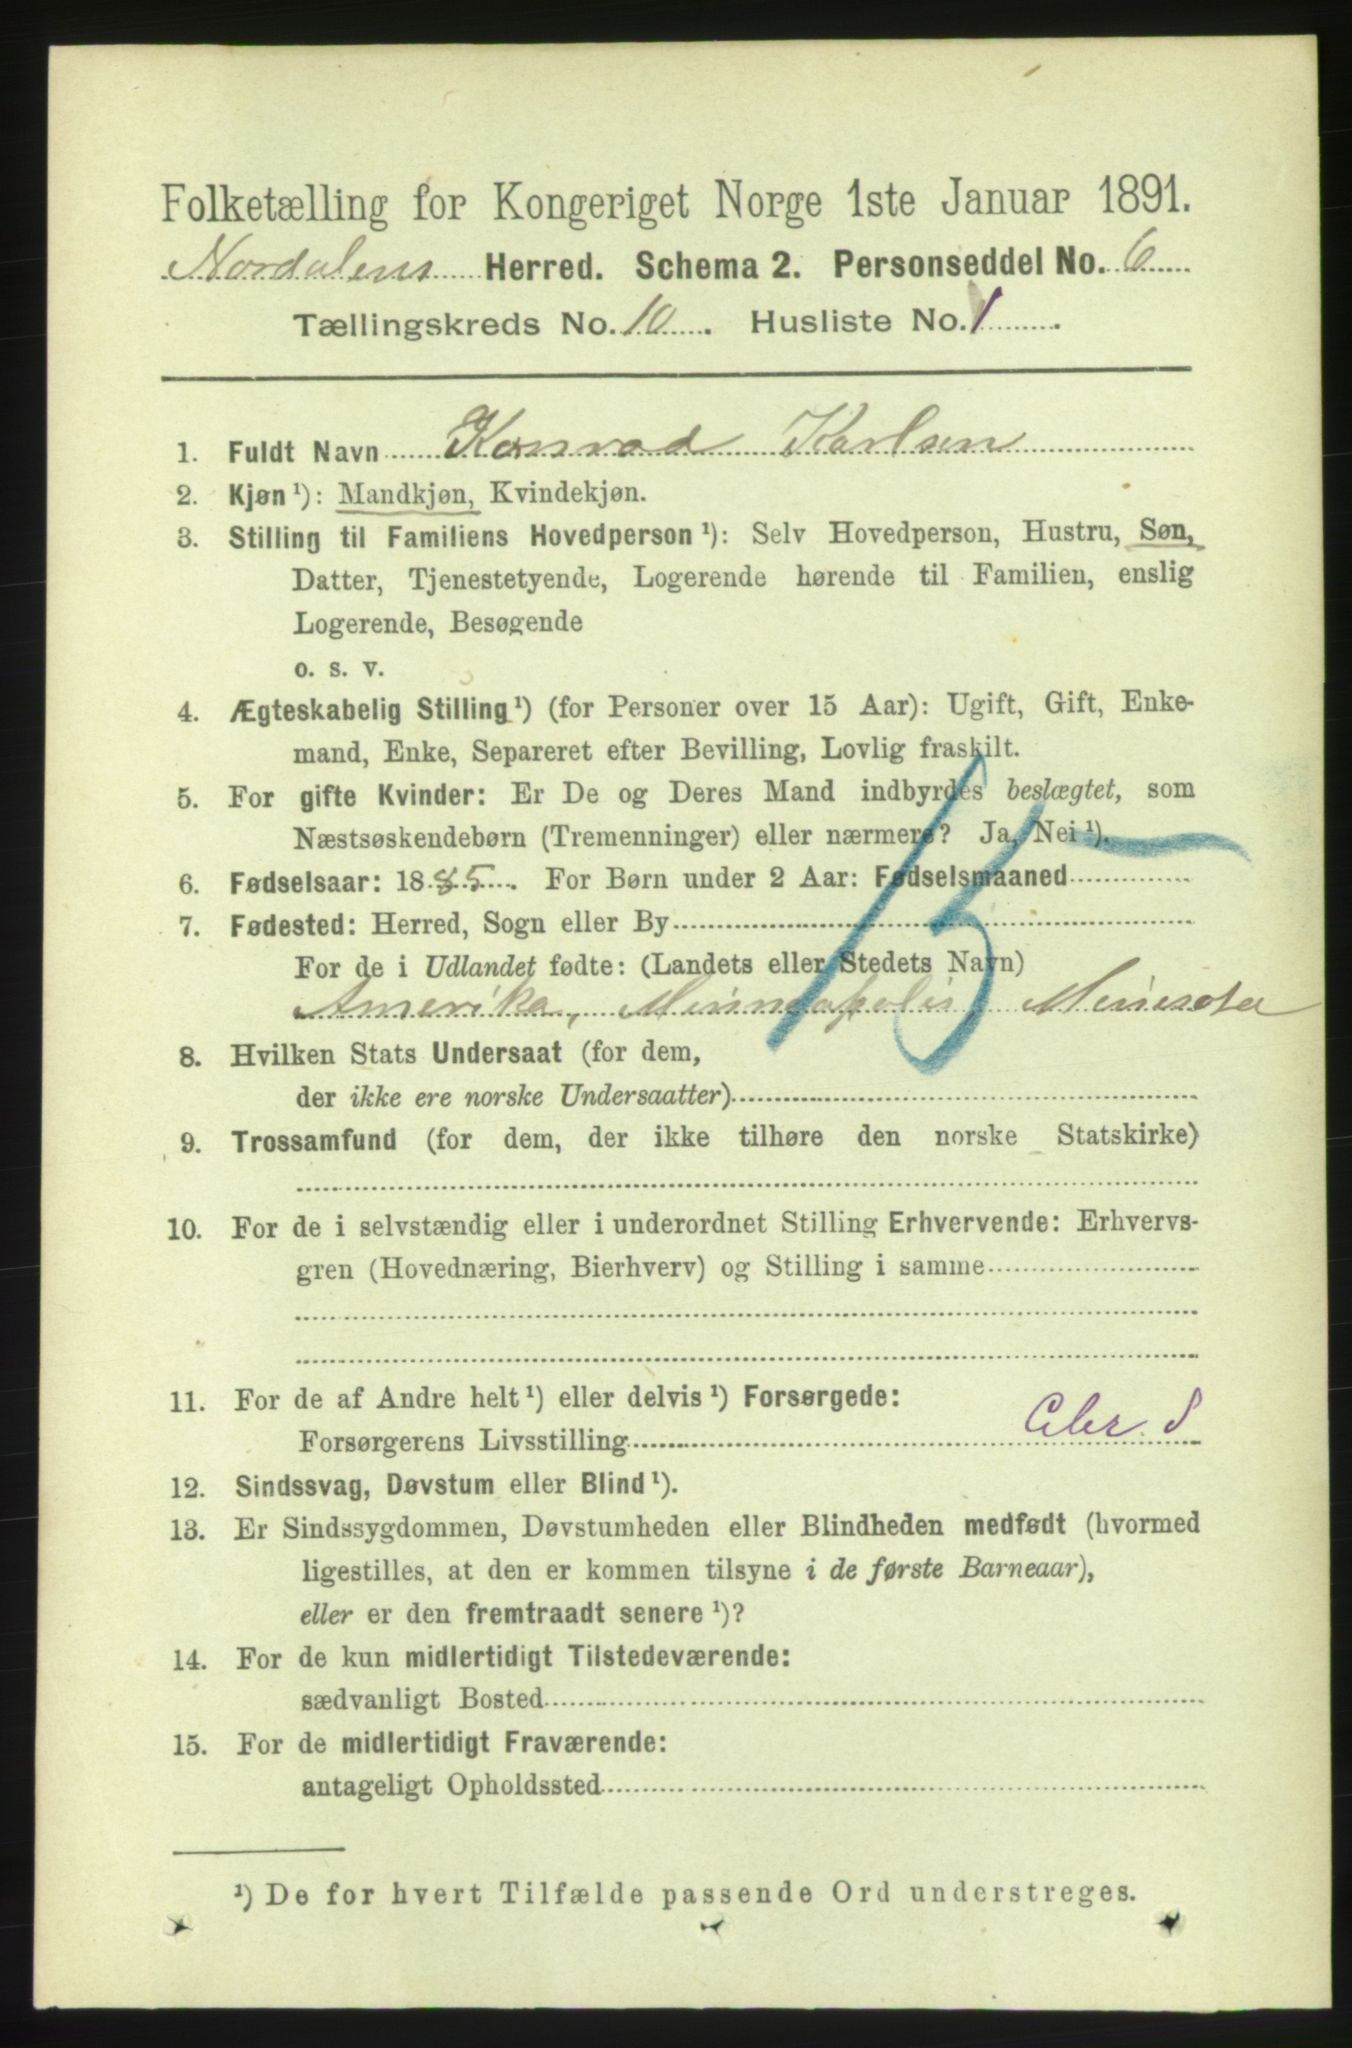 Folketælling for Kongeriget Norge 1ste Januar 1891.
Nordalens Herred. Schema 2. Personseddel No. 6
Tællingskreds No. 10. Husliste No. 1.
1. Fuldt Navn Konrad Karlsen
2. Kjøn ¹): Mandkjøn, Kvindekjøn.
3. Stilling til Familiens Hovedperson ¹): Selv Hovedperson, Hustru, Søn,
Datter, Tjenestetyende, Logerende hørende til Familien, enslig
Logerende, Besøgende
o. s. v.
4. Ægteskabelig Stilling ¹) (for Personer over 15 Aar): Ugift, Gift, Enke-
mand, Enke, Separeret efter Bevilling, Lovlig fraskilt.
5. For gifte Kvinder: Er De og Deres Mand indbyrdes beslægtet, som
Næstsøskendebørn (Tremenninger) eller nærmere? Ja, Nei ¹).
15
6. Fødselsaar: 1885. For Børn under 2 Aar: Fødselsmaaned
7. Fødested: Herred, Sogn eller By
For de i Udlandet fødte: (Landets eller Stedets Navn)
Amerika, Minneapolis, Minesota
8. Hvilken Stats Undersaat (for dem,
der ikke ere norske Undersaatter)
9. Trossamfund (for dem, der ikke tilhøre den norske Statskirke)
10. For de i selvstændig eller i underordnet Stilling Erhvervende: Erhvervs-
gren (Hovednæring, Bierhverv) og Stilling i samme
11. For de af Andre helt ¹) eller delvis ¹) Forsørgede:
Forsørgerens Livsstilling
12. Sindssvag, Døvstum eller Blind ¹).
13. Er Sindssygdommen, Døvstumheden eller Blindheden medfødt (hvormed
ligestilles, at den er kommen tilsyne i de første Barneaar),
eller er den fremtraadt senere ¹)?
14. For de kun midlertidigt Tilstedeværende:
sædvanligt Bosted
15. For de midlertidigt Fraværende:
antageligt Opholdssted
¹) De for hvert Tilfælde passende Ord understreges.